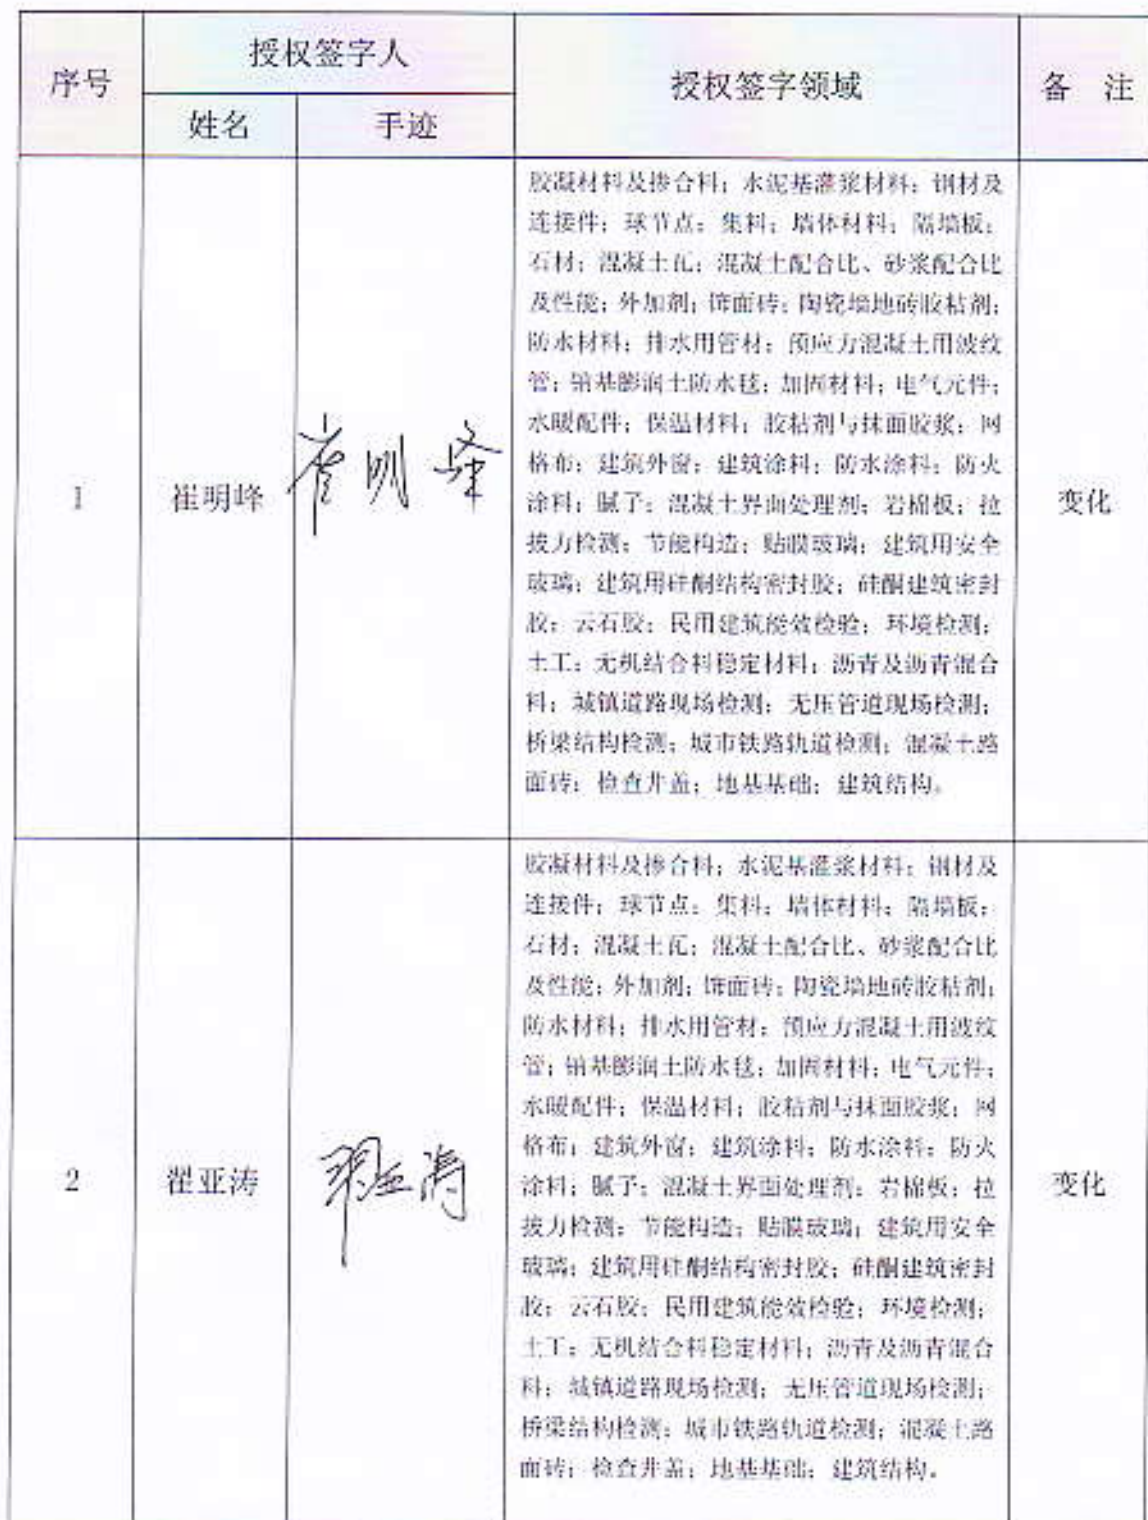 序号
授权签字人
姓名
手迹
授权签字领域
备 注
1
崔明峰
崔明峰
胶凝材料及掺合料；水泥基灌浆材料；钢材及
连接件；球节点；集料；墙体材料；隔墙板；
石材；混凝土瓦；混凝土配合比、砂浆配合比
及性能；外加剂；饰面砖；陶瓷墙地砖胶粘剂；
防水材料；排水用管材；预应力混凝土用波纹
管；钠基膨润土防水毯；加固材料；电气元件；
水暖配件；保温材料；胶粘剂与抹面胶浆；网
格布；建筑外窗；建筑涂料；防水涂料；防火
涂料；腻子；混凝土界面处理剂；岩棉板；拉
拔力检测；节能构造；贴膜玻璃；建筑用安全
玻璃；建筑用硅酮结构密封胶；硅酮建筑密封
胶；云石胶；民用建筑能效检验；环境检测；
土工；无机结合料稳定材料；沥青及沥青混合
料；城镇道路现场检测；无压管道现场检测；
桥梁结构检测；城市铁路轨道检测；混凝土路
面砖；检查井盖；地基基础；建筑结构。
变化
2
翟亚涛
翟亚涛
胶凝材料及掺合料；水泥基灌浆材料；钢材及
连接件；球节点；集料；墙体材料；隔墙板；
石材；混凝土瓦；混凝土配合比、砂浆配合比
及性能；外加剂；饰面砖；陶瓷墙地砖胶粘剂；
防水材料；排水用管材；预应力混凝土用波纹
管；钠基膨润土防水毯；加固材料；电气元件；
水暖配件；保温材料；胶粘剂与抹面胶浆；网
格布；建筑外窗；建筑涂料；防水涂料；防火
涂料；腻子；混凝土界面处理剂；岩棉板；拉
拔力检测；节能构造；贴膜玻璃；建筑用安全
玻璃；建筑用硅酮结构密封胶；硅酮建筑密封
胶；云石胶；民用建筑能效检验；环境检测；
土工；无机结合料稳定材料；沥青及沥青混合
料；城镇道路现场检测；无压管道现场检测；
桥梁结构检测；城市铁路轨道检测；混凝土路
面砖；检查井盖；地基基础；建筑结构。
变化